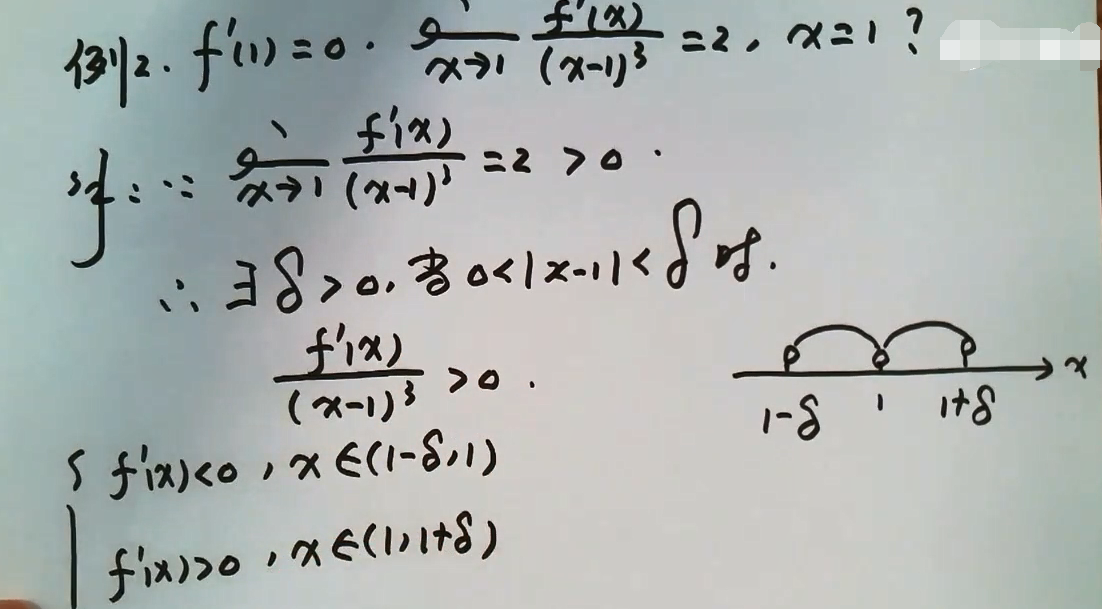 例2. f'(1)=0. lim x→1 f'(x)/(x-1)³ =2, x=1?
解: ∵ lim x→1 f'(x)/(x-1)³ =2>0.
∴ ∃δ>0, 当0<|x-1|<δ时.
f'(x)/(x-1)³ >0.
1-δ 1 1+δ x
{ f'(x)<0, x∈(1-δ,1)
f'(x)>0, x∈(1,1+δ)